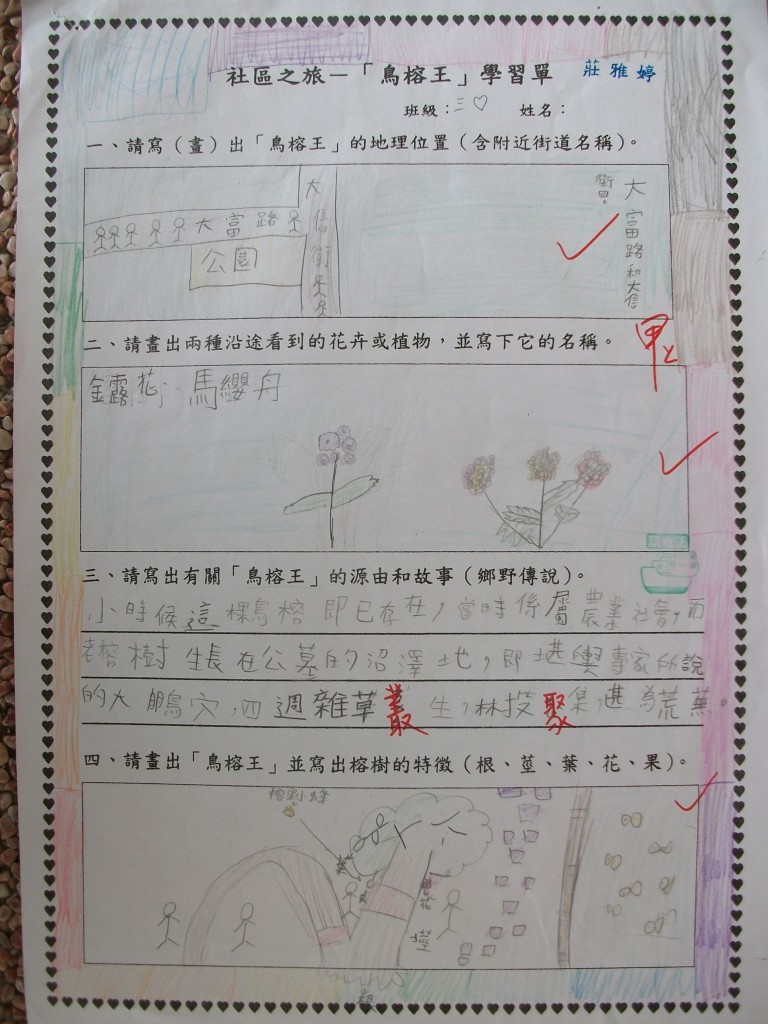 社區之旅－「鳥榕王」學習單 莊雅婷
班級：三♡ 姓名：
一、請寫（畫）出「鳥榕王」的地理位置（含附近街道名稱）。
大富路
大信街
公園
大富路和大信
街口。
二、請畫出兩種沿途看到的花卉或植物，並寫下它的名稱。
甲上
金露花 馬纓丹
三、請寫出有關「鳥榕王」的源由和故事（鄉野傳說）。
小時候這棵鳥榕即已存在，當時係屬農業社會，而
老榕樹生長在公墓的沼澤地，即堪輿專家所說
的大鵬穴，四週雜草叢生，林投聚集，甚為荒蕪。
四、請畫出「鳥榕王」並寫出榕樹的特徵（根、莖、葉、花、果）。
榕小蜂
葉
莖
根